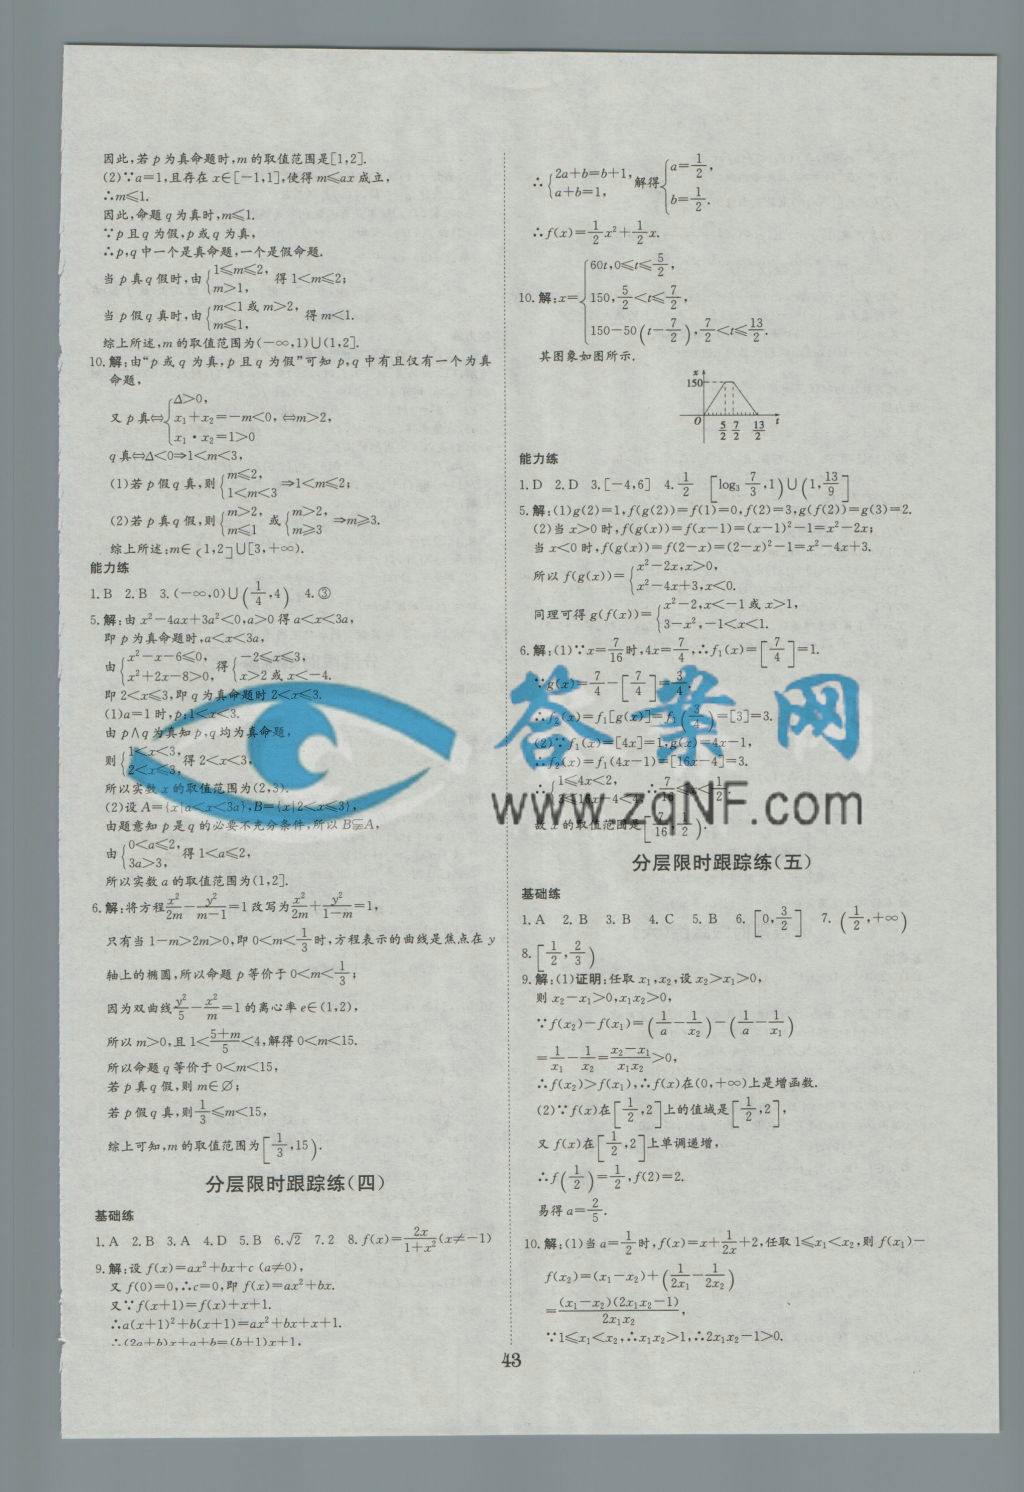 因此,若 p 为真命题时,m 的取值范围是[1,2].
(2)∵a=1,且存在 x∈[-1,1],使得 m≤ax 成立,
∴m≤1.
因此,命题 q 为真时,m≤1.
∵p 且 q 为假,p 或 q 为真,
∴p,q 中一个是真命题,一个是假命题.
当 p 真 q 假时,由{1≤m≤2, m>1, 得 1<m≤2;
当 p 假 q 真时,由{m<1 或 m>2, m≤1, 得 m<1.
综上所述,m 的取值范围为(-∞,1)∪(1,2].
10.解:由“p 或 q 为真,p 且 q 为假”可知 p,q 中有且仅有一个为真
命题,
又 p 真⇔{Δ>0, x₁+x₂=-m<0, x₁·x₂=1>0 ⇔m>2,
q 真⇔Δ<0⇒1<m<3,
(1)若 p 假 q 真,则{m≤2, 1<m<3 ⇒1<m≤2;
(2)若 p 真 q 假,则{m>2, m≤1 或{m>2, m≥3 ⇒m≥3.
综上所述:m∈(1,2]∪[3,+∞).
能力练
1.B 2.B 3.(-∞,0)∪(1/4,4) 4.③
5.解:由 x²-4ax+3a²<0,a>0 得 a<x<3a,
即 p 为真命题时,a<x<3a,
由{x²-x-6≤0, x²+2x-8>0, 得{-2≤x≤3, x>2 或 x<-4.
即 2<x≤3,即 q 为真命题时 2<x≤3.
(1)a=1 时,p:1<x<3.
由 p∧q 为真知 p,q 均为真命题,
则{1<x<3, 2<x≤3, 得 2<x<3,
所以实数 x 的取值范围为(2,3).
(2)设 A={x|a<x<3a},B={x|2<x≤3},
由题意知 p 是 q 的必要不充分条件,所以 B⫋A,
由{0<a≤2, 3a>3, 得 1<a≤2,
所以实数 a 的取值范围为(1,2].
6.解:将方程x²/2m-y²/(m-1)=1 改写为x²/2m+y²/(1-m)=1,
只有当 1-m>2m>0,即 0<m<1/3时,方程表示的曲线是焦点在 y
轴上的椭圆,所以命题 p 等价于 0<m<1/3;
因为双曲线y²/5-x²/m=1 的离心率 e∈(1,2),
所以 m>0,且 1<(5+m)/5<4,解得 0<m<15.
所以命题 q 等价于 0<m<15,
若 p 真 q 假,则 m∈∅;
若 p 假 q 真,则1/3≤m<15,
综上可知,m 的取值范围为[1/3,15).
分层限时跟踪练(四)
基础练
1.A 2.B 3.A 4.D 5.B 6.√2 7.2 8.f(x)=2x/(1+x²)(x≠-1)
9.解:设 f(x)=ax²+bx+c (a≠0),
又 f(0)=0,∴c=0,即 f(x)=ax²+bx.
又∵f(x+1)=f(x)+x+1.
∴a(x+1)²+b(x+1)=ax²+bx+x+1.
∴(2a+b)x+a+b=(b+1)x+1,
∴{2a+b=b+1, a+b=1, 解得{a=1/2, b=1/2.
∴f(x)=1/2x²+1/2x.
10.解:x={60t,0≤t≤5/2, 150,5/2<t≤7/2, 150-50(t-7/2),7/2<t≤13/2.
其图象如图所示.
x
150
O 5/2 7/2 13/2 t
能力练
1.D 2.D 3.[-4,6] 4.1/2 [log₃7/3,1)∪(1,13/9]
5.解:(1)g(2)=1,f(g(2))=f(1)=0,f(2)=3,g(f(2))=g(3)=2.
(2)当 x>0 时,f(g(x))=f(x-1)=(x-1)²-1=x²-2x;
当 x<0 时,f(g(x))=f(2-x)=(2-x)²-1=x²-4x+3.
所以 f(g(x))={x²-2x,x>0, x²-4x+3,x<0.
同理可得 g(f(x))={x²-2,x<-1 或 x>1, 3-x²,-1<x<1.
6.解:(1)∵x=7/16时,4x=7/4,∴f₁(x)=[7/4]=1.
∵g(x)=7/4-[7/4]=3/4.
∴f₂(x)=f₁[g(x)]=f₁(3/4)=[3]=3.
(2)∵f₁(x)=[4x]=1,g(x)=4x-1,
∴f₂(x)=f₁(4x-1)=[16x-4]=3.
∴{1≤4x<2, 3≤16x-4<4, ∴7/16≤x<1/2.
故 x 的取值范围是[7/16,1/2).
答案网
www.zqNF.com
分层限时跟踪练(五)
基础练
1.A 2.B 3.B 4.C 5.B 6.[0,3/2] 7.(1/2,+∞)
8.[1/2,2/3)
9.解:(1)证明:任取 x₁,x₂,设 x₂>x₁>0,
则 x₂-x₁>0,x₁x₂>0,
∵f(x₂)-f(x₁)=(1/a-1/x₂)-(1/a-1/x₁)
=1/x₁-1/x₂=(x₂-x₁)/x₁x₂>0,
∴f(x₂)>f(x₁),∴f(x)在(0,+∞)上是增函数.
(2)∵f(x)在[1/2,2]上的值域是[1/2,2],
又 f(x)在[1/2,2]上单调递增,
∴f(1/2)=1/2,f(2)=2.
易得 a=2/5.
10.解:(1)当 a=1/2时,f(x)=x+1/2x+2,任取 1≤x₁<x₂,则 f(x₁)-
f(x₂)=(x₁-x₂)+(1/2x₁-1/2x₂)
=(x₁-x₂)(2x₁x₂-1)/2x₁x₂,
∵1≤x₁<x₂,∴x₁x₂>1,∴2x₁x₂-1>0.
43